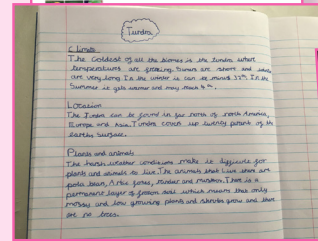 Tundra
Climate
The Coldest of all the biomes is the tundra where
temperatures are freezing. are short and
are very long. In the winter it can be minus In the
Summer it gets warmer and may reach
Location
The Tundra can be found in the north of north America,
Europe and Asia. Tundra cover up twenty percent of the
earths surface.
Plants and animals
The harsh weather conditions make it difficult for
plants and animals to live. The animals that live there are
polar bears, Artic foxes, reindeer and There is a
permanent layer of frozen soil which means that only
mosses and low growing plants and shrubs grow and there
are no trees.